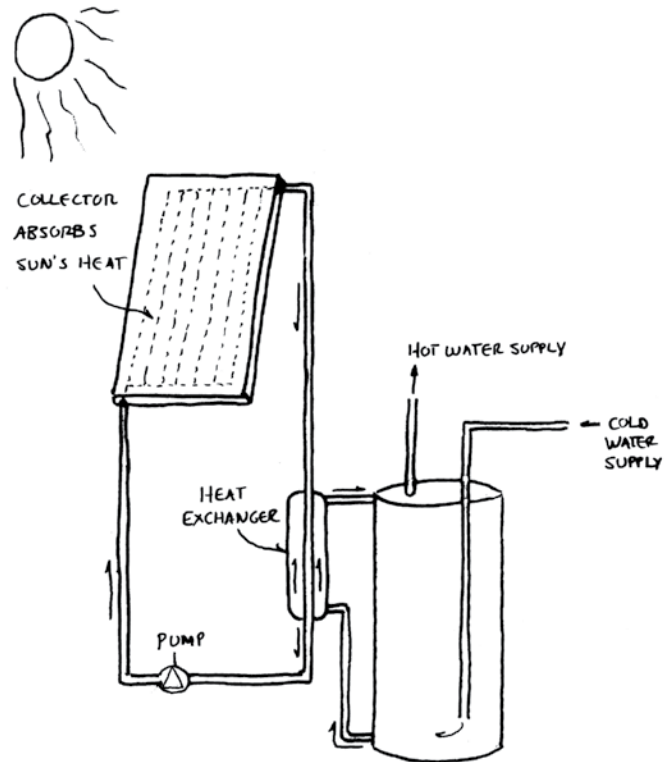 COLLECTOR
ABSORBS
SUN'S HEAT
HOT WATER SUPPLY
COLD
WATER
SUPPLY
HEAT
EXCHANGER
PUMP